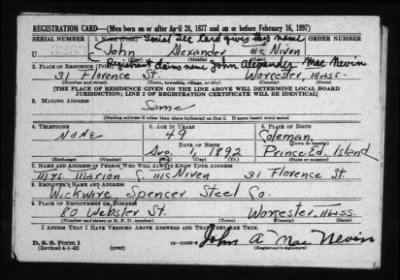 REGISTRATION CARD—(Men born on or after April 28, 1877 and on or before February 16, 1897)
SERIAL NUMBER
1. NAME (Print)
ORDER NUMBER
U
John Alexander McNiven
(First) (Middle) (Last)
Registrant claims name John Alexander MacNevin
2. PLACE OF RESIDENCE (Print)
31 Florence St. Worcester, Mass.
(Number and street) (Town, township, village, or city) (County) (State)
[THE PLACE OF RESIDENCE GIVEN ON THE LINE ABOVE WILL DETERMINE LOCAL BOARD
JURISDICTION; LINE 2 OF REGISTRATION CERTIFICATE WILL BE IDENTICAL]
3. MAILING ADDRESS
Same
[Mailing address if other than place indicated on line 2. If same insert word same]
4. TELEPHONE
5. AGE IN YEARS
6. PLACE OF BIRTH
None
49
Coleman,
DATE OF BIRTH
(Town or county)
1, 1892
Prince Ed. Island
(Exchange) (Number)
(Mo.) (Day) (Yr.)
(State or country)
7. NAME AND ADDRESS OF PERSON WHO WILL ALWAYS KNOW YOUR ADDRESS
Mrs. Marion McNiven 31 Florence St.
8. EMPLOYER'S NAME AND ADDRESS
Wickwire Spencer Steel Co.
9. PLACE OF EMPLOYMENT OR BUSINESS
80 Webster St. Worcester, Mass.
(Number and street or R. F. D. number) (Town) (County) (State)
I AFFIRM THAT I HAVE VERIFIED ABOVE ANSWERS AND THAT THEY ARE TRUE.
D. S. S. Form 1
(Revised 4-1-42) (over)
John A MacNevin
(Registrant's signature)